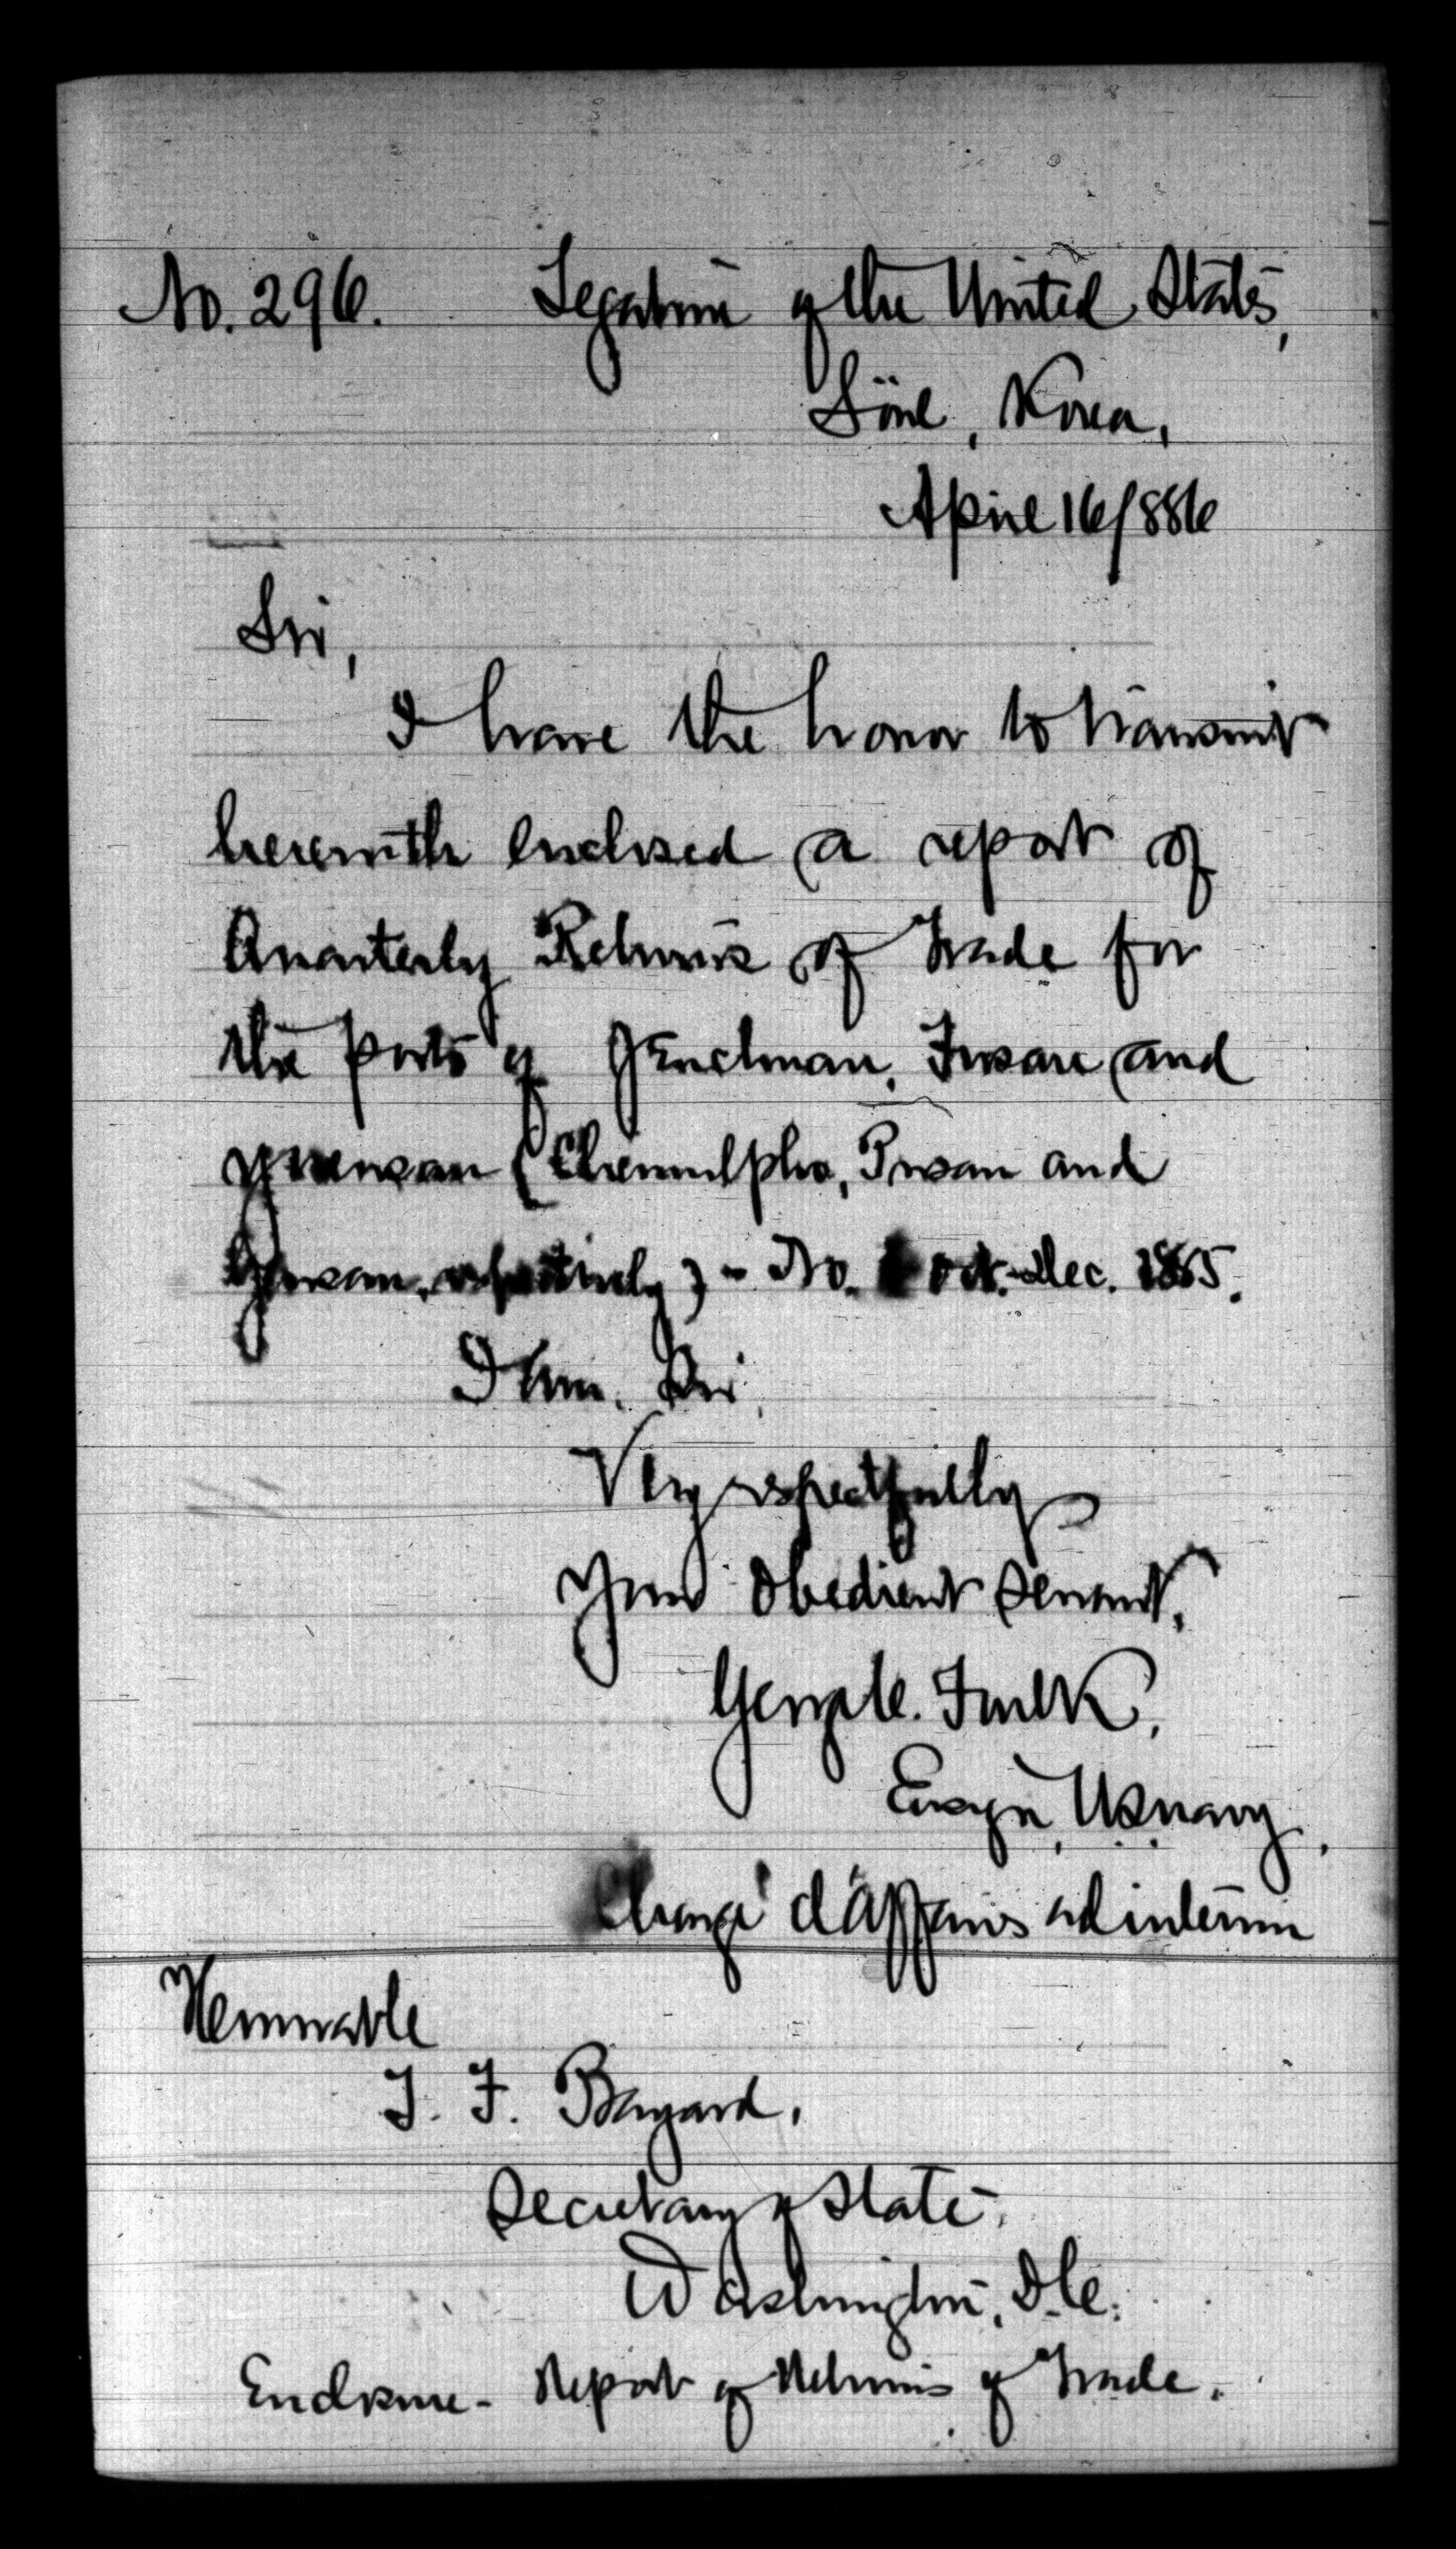 No. 296. Legation of the United States,
Söul, Korea,
April 16/886
Sir,
I have the honor to transmit
herewith enclosed a report of
Quarterly Returns of Trade for
the ports of Jenchuan, Fusan and
Yuensan (Chemulpho, Pusan and
respectively) - No. Oct.-Dec. 1885.
I am, Sir,
Very respectfully
Your obedient servant,
George C. Foulk,
Ensign, U.S. Navy,
Chargé d'Affaires ad interim
Honorable
T. F. Bayard,
Secretary of State,
Washington, D.C.
Enclosure - Report of Returns of Trade.